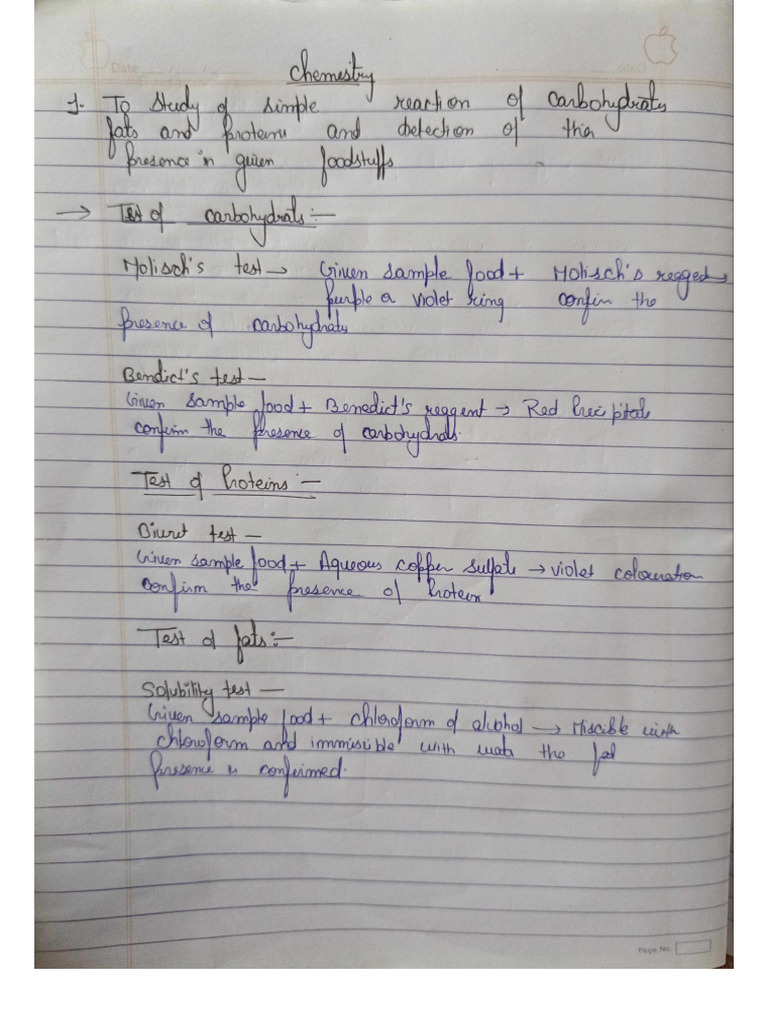 Date
Chemestry
1. To study of simple reaction of carbohydrates
fats and proteins and detection of their
presence in given foodstuffs
→ Test of carbohydrats:-
Molisch's test → Given sample food + Molisch's regged →
purple or violet ring confim the
presence of carbohydrats
Bendict's test –
Given sample food + Benedict's reggent → Red Precipitats
confirm the presence of carbohydrats.
Test of Proteins:-
Biuret test –
Given sample food + Aqueous copper sulfate → violet colouration
confirm the presence of Protein
Test of fats:-
Solubility test –
Given sample food + chloroform of alcohol → Miscible with
chloroform and immiscible with wate the fat
presence is confirmed.
Page No.